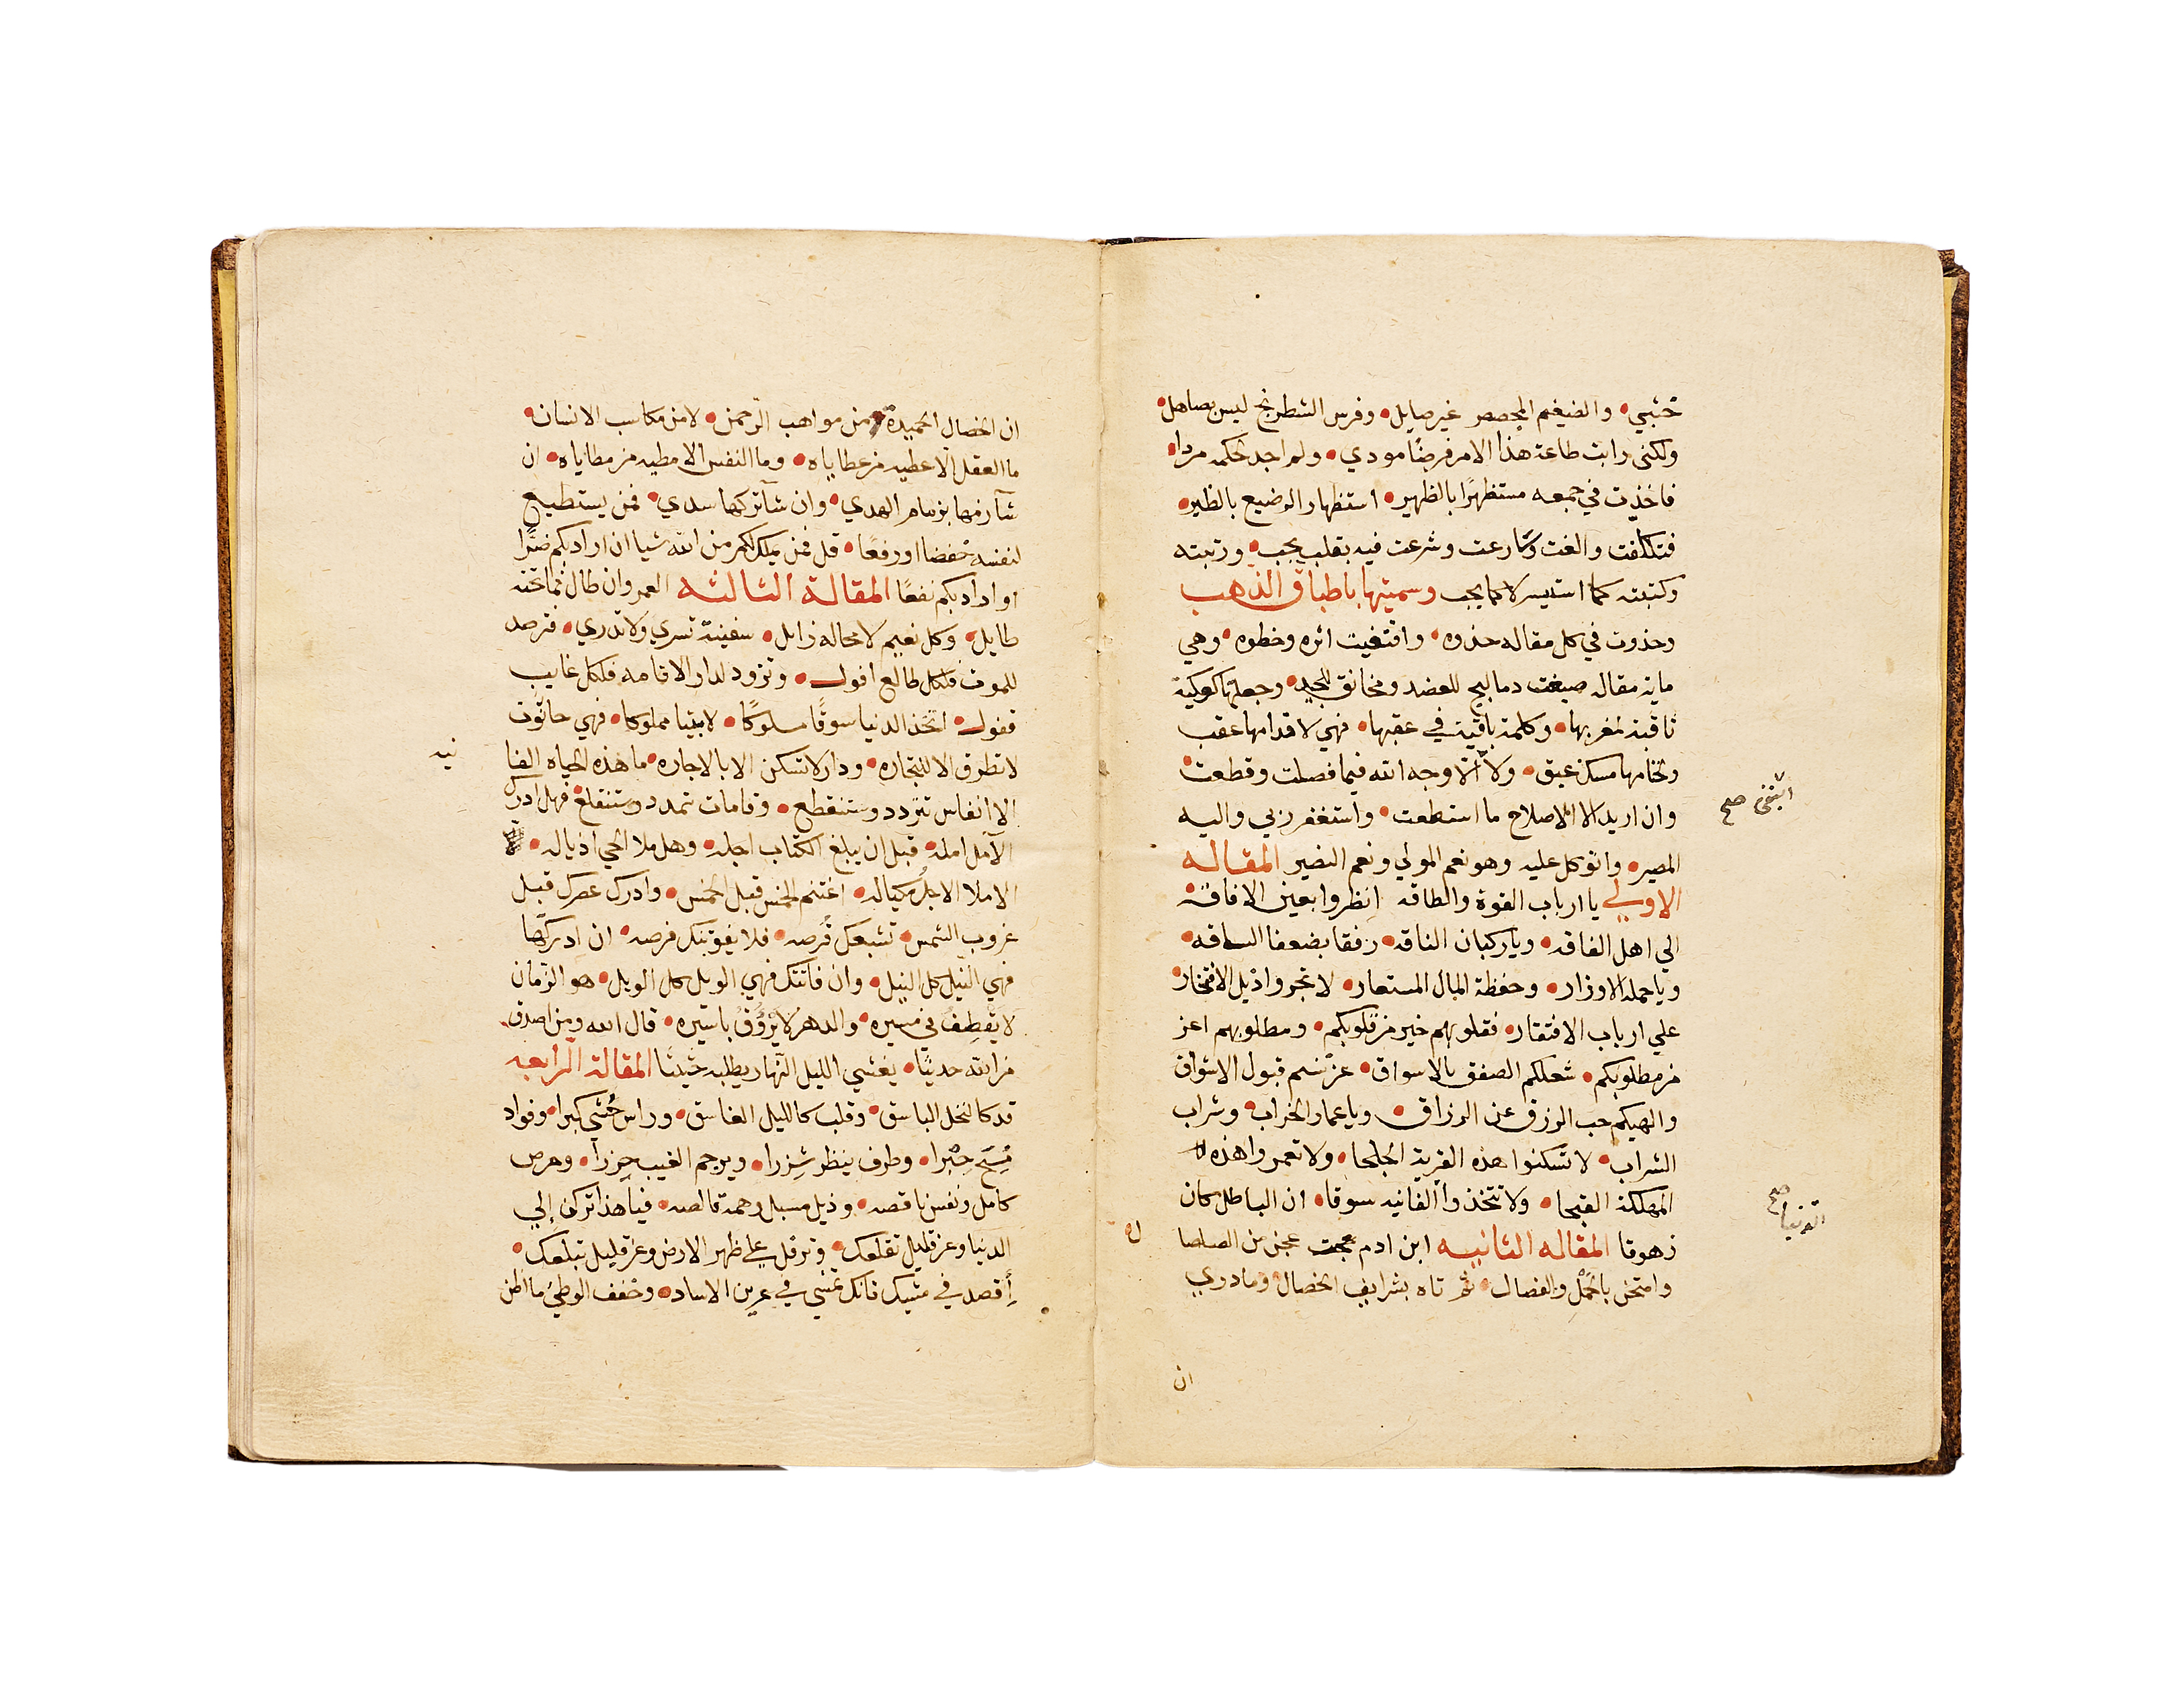 خشبي • والضيغم المجصص غير صايل • وفرس الشطرنج ليس بصاهل •
ولكني رايت طاعة هذا الامر فرضا مودي • ولم اجد لحكمه مردا •
فاخذت في جمعه مستظهرا بالظهير • استظهار الرضيع بالظير •
فتكلفت والغت وشرعت فيه بقلب يجب • ورتبته
وكتبته كما استيسر لا كما يجب وسميتها باطباق الذهب
وحذوت في كل مقاله حذوه • واقتفيت اثره وخطوه • وهي
ماية مقاله صيغت دماليج للعضد ومخانق للجيد • وجعلتها كوكبة
ثاقبة لمغربها • وكلمة باقية في عقبها • فهي لاقدامها عقب
ولختامها مسك عبق • ولا الا وجه الله فيما فصلت وقطعت •
وان اريد الا الاصلاح ما استطعت • واستغفر ربي واليه
المصير • واتوكل عليه وهو نعم المولي ونعم النصير المقاله
الاولي يا ارباب القوة والطاقه انظروا بعين الافاقة •
الي اهل الفاقه • وياركبان الناقه • رفقا بضعفا الساقه •
وياحملة الاوزار • وحفظة المال المستعار • لا تجروا ذيل الافتخار •
علي ارباب الافتقار • فقلوبهم خير من قلوبكم • ومطلوبهم اعز
من مطلوبكم • شغلكم الصفق بالاسواق • عن نسم قبول الاشواق
والهيكم حب الرزق عن الرزاق • وياعمار الخراب • وشراب
الشراب • لا تسكنوا هذه القرية الجلحا • ولا تعمروا هذه
المهلكة القبحا • ولا تتخذوا الفانيه سوقا • ان الباطل كان
زهوقا المقاله الثانيه ابن ادم عجن من الصلصا
ل •
وامتحن بالحمل والفصال • ثم تاه بشرايف الخصال • وما دري
ان
صح
صح
ان الخصال الحميدة من مواهب الرحمن • لا من مكاسب الانسان •
ما العقل الا عطيه من عطاياه • وما النفس الا مطيه من مطاياه • ان
شآ زمها بزمام الهدي • وان شآ تركها سدي • فمن يستطيع
لنفسه خفضا او رفعا • قل فمن يملك لكم من الله شيا ان اراد بكم ضرا
او اراد بكم نفعا المقالة الثالثه العمر وان طال فما تحته
طايل • وكل نعيم لا محاله زايل • سفينة تسري ولا تدري • فترصد
للموت فلكل طالع افول • وتزود لدار الاقامه فلكل غايب
قفول • اتخذ الدنيا سوقا مسلوكا • لا بيتا مملوكا • فهي حانوت
لا تطرق الا للتجاره • ودار لا تسكن الا بالاجاره • ما هذه الحياه الفا
نيه
الا انفاس تتردد وستنقطع • وقامات تمدد وستنقلع • فهل ادرك
الآمل امله • قبل ان يبلغ الكتاب اجله • وهل ملا الحي اذياله •
الا ملا الاجل مكياله • اغتنم الخمس قبل الخمس • وادرك عصرك قبل
غروب الشمس • تشبعك قرصه • فلا يفوتنك فرصه • ان ادركتها
فهي النيل كل النيل • وان فاتتك فهي الويل كل الويل • هو الزمان
لا يقطف في مسيره • والدهر لا يروق باسيره • قال الله ومن اصدق
من الله حديثا • يغشي الليل النهار يطلبه حثيثا المقالة الرابعه
قد كالنخل الباسق • وقلب كالليل الغاسق • وراس حشي كبرا • وفواد
• وطرف ينظر شزرا • ويرجم الغيب حزرا • وحرص
كامل ونفس ناقصه • وذيل مسبل وهمة قالصه • فيا هذا تركن الي
الدنيا وعن قليل تقلعك • وترفل علي ظهر الارض وعن قليل تبلعك •
أقصد في مشيك فانك تمشي في عرين الاساد • وخفف الوطئ ما اظن